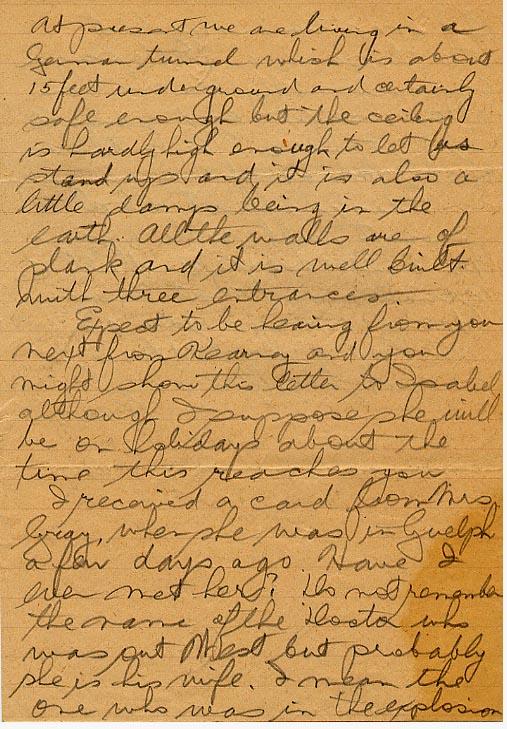 At present we are living in a
German tunnel which is about
15 feet underground and certainly
safe enough but the ceiling
is hardly high enough to let us
stand up and it is also a
little damp being in the
earth. All the walls are of
plank and it is well built
with three entrances
Expect to be hearing from you
next from Kearney and you
might show this letter to Isabel
although I suppose she will
be on holidays about the
time this reaches you
I received a card from Mrs
when she was in Guelph
a few days ago. Have I
ever met her? Do not remember
the name of the Doctor who
was out West but probably
she is his wife. I mean the
one who was in the explosion